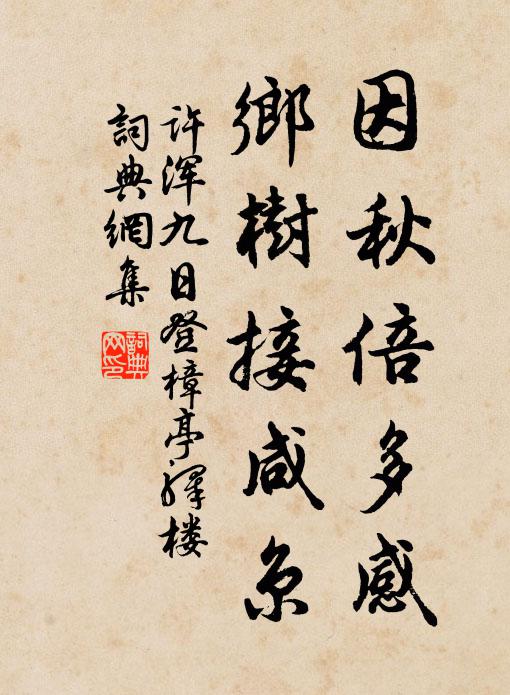 因秋倍多感
鄉樹接咸京
许浑九日登樟亭驿楼
詞典網集
詞典
网印